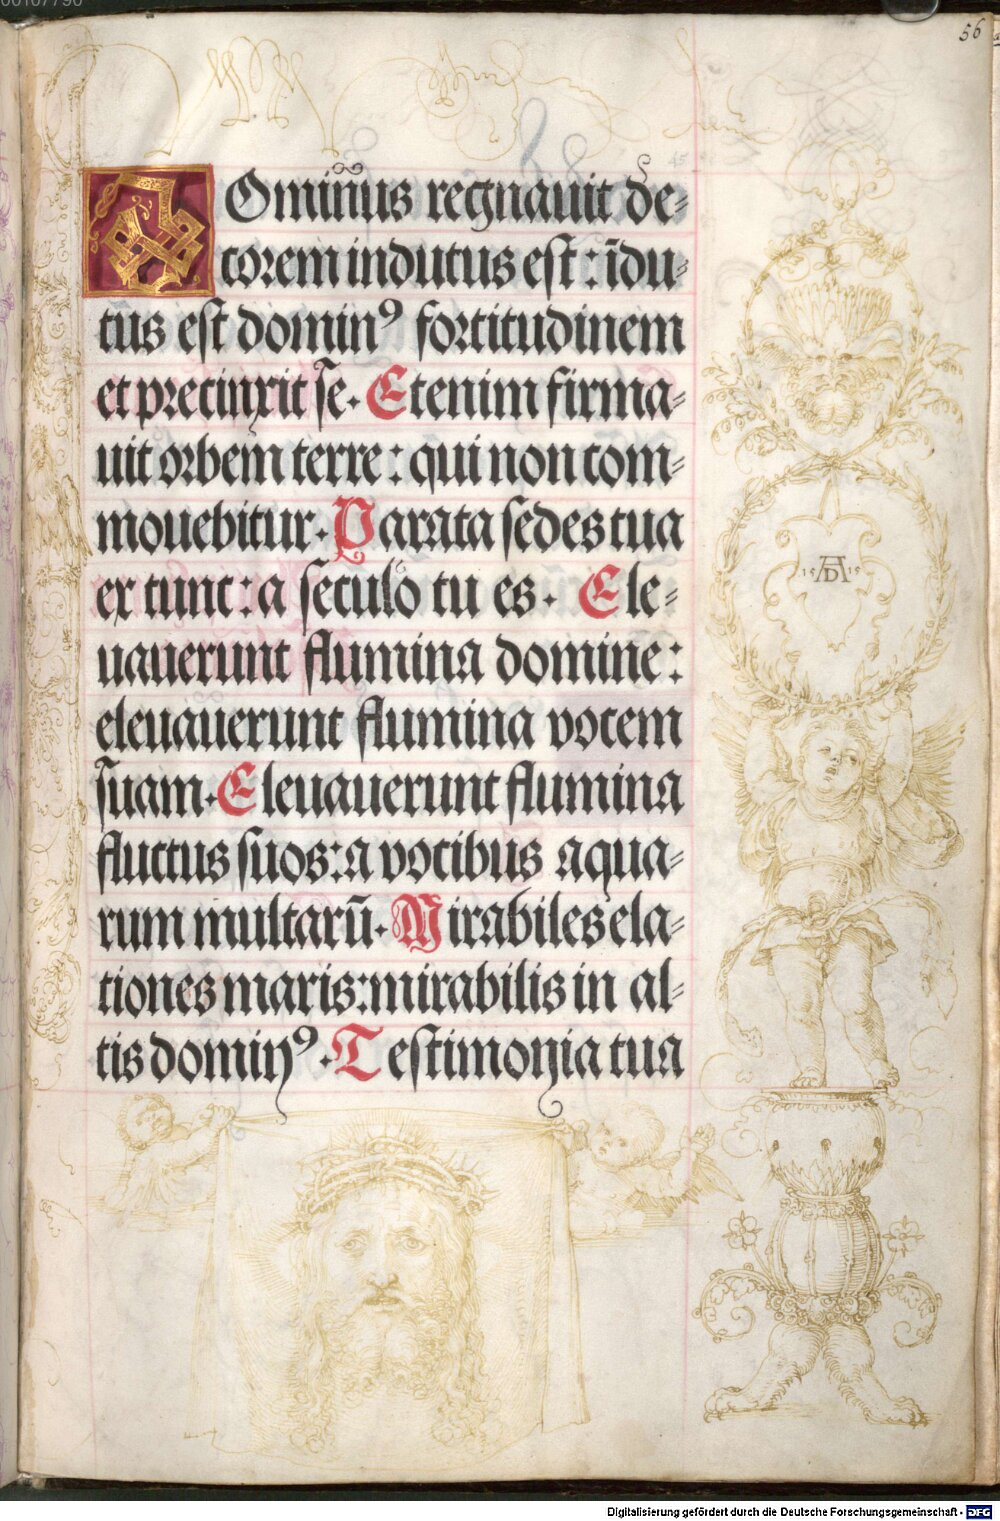 00107790
56
45.
Dominus regnauit de=
corem indutus est: īdu=
tus est domin⁹ fortitudinem
et precinxit se. Etenim firma=
uit orbem terre: qui non com=
mouebitur. Parata sedes tua
ex tunc: a seculo tu es. Ele=
uauerunt flumina domine:
eleuauerunt flumina vocem
suam. Eleuauerunt flumina
fluctus suos: a vocibus aqua=
rum multarū. Mirabiles ela=
tiones maris: mirabilis in al=
tis domin⁹. Testimonia tua
15 AD 15
Digitalisierung gefördert durch die Deutsche Forschungsgemeinschaft - DFG